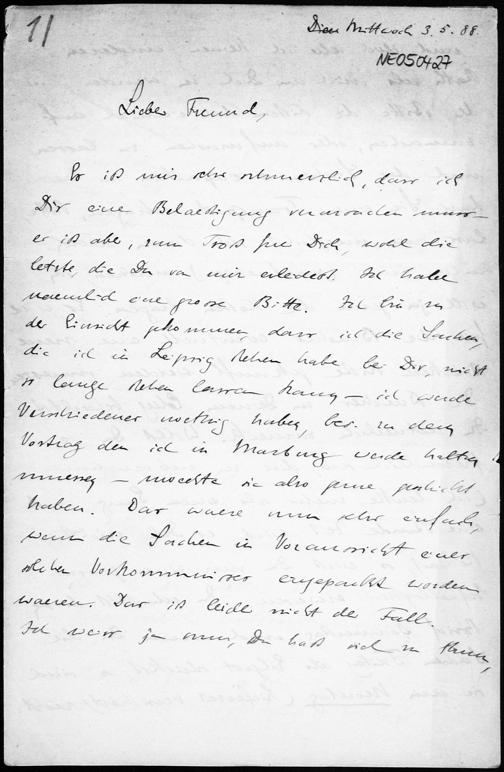 1/
Mittwoch 3. 5. 88.
NE050427
Lieber Freund,
Es ist mir sehr schmerzlich, dass ich
Dir eine Belaestigung verursachen muss–
er ist aber, zum Trost fuer Dich, wohl die
letzte, die Du von mir erledest. Ich habe
naemlich eine grosse Bitte. Ich bin zu
der Einsicht gekommen, dass ich die Sachen,
die ich in Leipzig stehen habe bei Dir, nicht
so lange stehen lassen kann – ich werde
Verschiedenes noethig haben, bes. zu dem
Vortrag den ich in Marburg werde halten
muessen – moechte sie also gerne geschickt
haben. Das waere nun sehr einfach,
wenn die Sachen in Voraussicht eines
solchen Vorkommnisses eingepackt worden
waeren. Das ist leider nicht der Fall.
Ich weiss ja nun, Du hast viel zu thun,